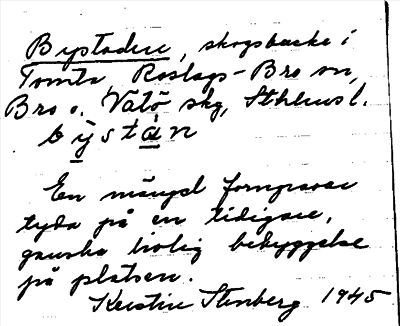 Bystaden, skogsbacke i
Tomta, Roslags-Bro sn,
Bro o. Vätö skg, Sthlms l.
bystàn
En mängd forngravar
tyda på en tidigare,
ganska livlig bebyggelse
på platsen.
Kerstin Stenberg 1945